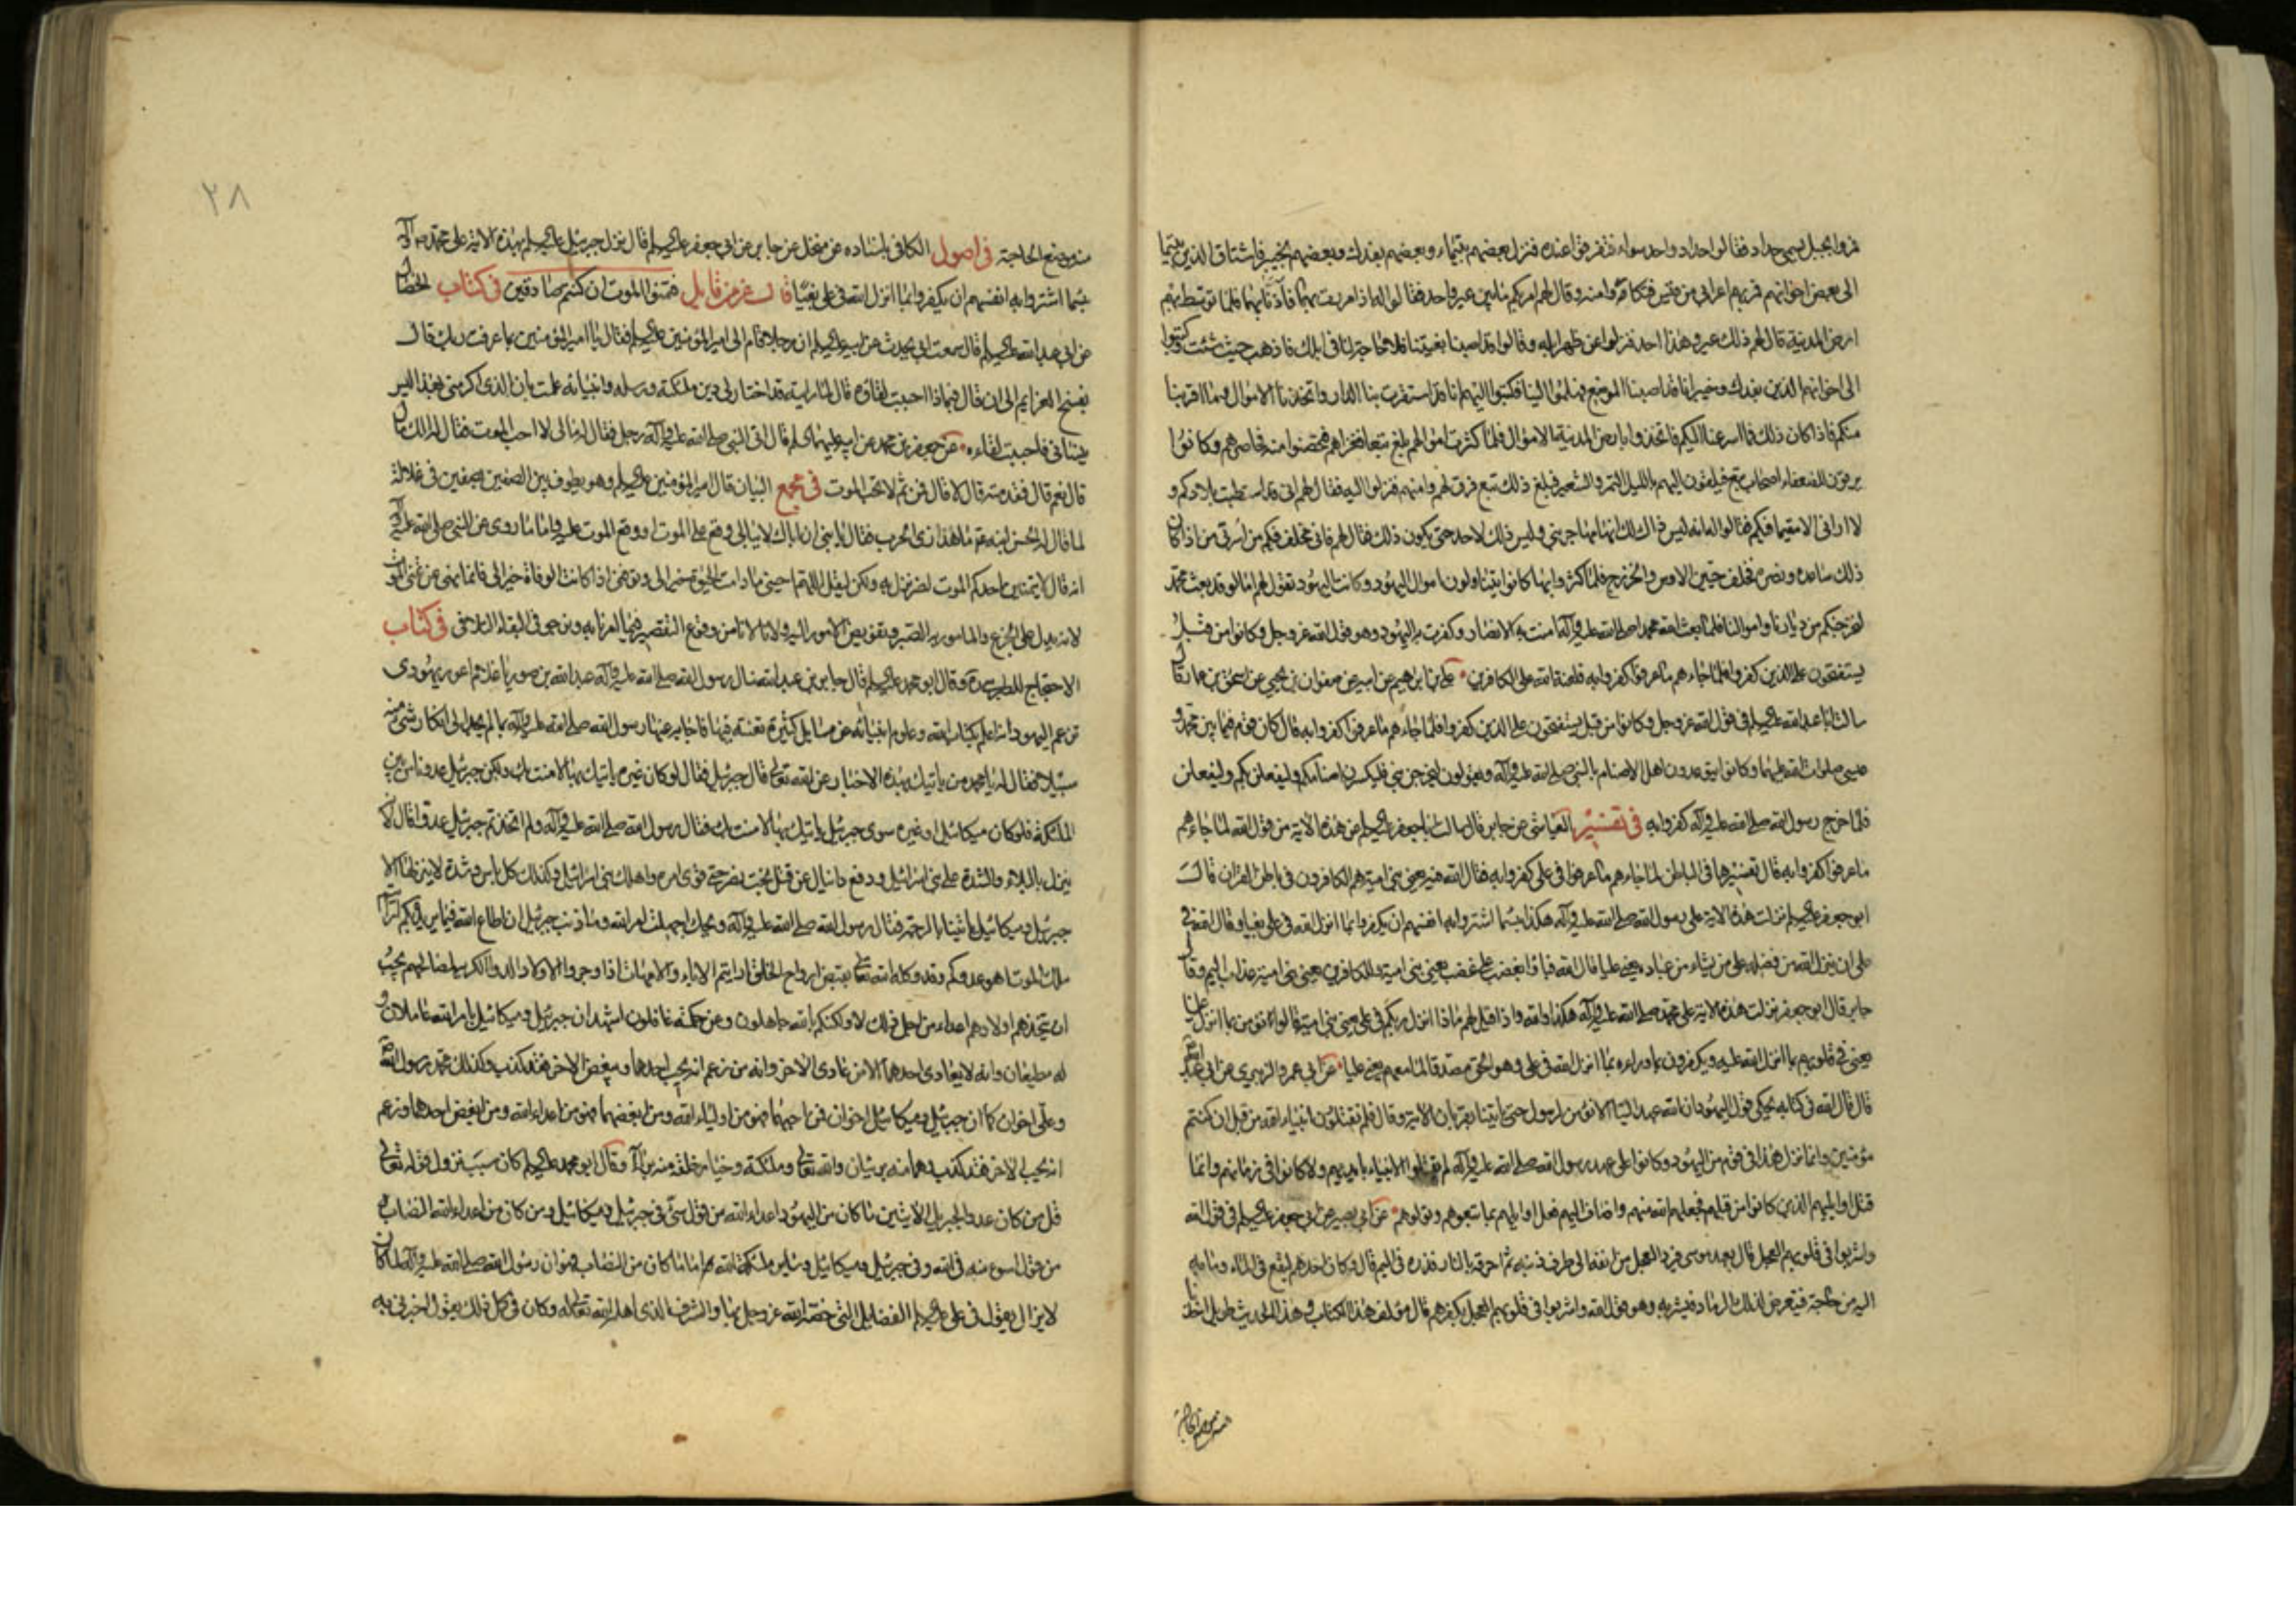 فمروا بجبل يسمى حداد فقالوا حداد واحد سواء فتفرقوا عنده فنزل بعضهم بتيماء وبعضهم بفدك وبعضهم بخيبر فاشتاق الذين بتيما
الى بعض اخوانهم فمر بهم اعرابي من قيس فتكاروا منه وقال لهم امر بكم ما بين عير واحد فقالوا له اذا مررت بهما فآذنا بهما فلما توسط بهم
ارض المدينة قال لهم ذلك عير وهذا احد فنزلوا عن ظهر ابله وقالوا قد اصبنا بغيتنا فلا حاجة لنا في ابلك فاذهب حيث شئت وكتبوا
الى اخوانهم الذين بفدك وخيبر انا قد اصبنا الموضع فهلموا الينا فكتبوا اليهم انا قد استقرت بنا الدار واتخذنا الاموال وما اقربنا
منكم فاذا كان ذلك فما اسرعنا اليكم فاتخذوا بارض المدينة الاموال فلما كثرت اموالهم بلغ تبع فغزاهم فتحصنوا منه فحاصرهم وكانوا
يرقون لضعفاء اصحاب تبع فيلقون اليهم بالليل التمر والشعير فبلغ ذلك تبع فرق لهم وامنهم فنزلوا اليه فقال لهم اني قد استطبت بلادكم و
لا اراني الا مقيما فيكم فقالوا له انه ليس ذاك لك انها مهاجر نبي وليس ذلك لاحد حتى يكون ذلك فقال لهم فاني مخلف فيكم من اسرتي من اذا كان
ذلك ساعده ونصره فخلف حيين الاوس والخزرج فلما كثروا بها كانوا يتناولون اموال اليهود وكانت اليهود تقول لهم اما لو قد بعث محمد
لنخرجنكم من ديارنا واموالنا فلما بعث الله محمدا صلى الله عليه وآله آمنت به الانصار وكفرت به اليهود وهو قول الله عز وجل وكانوا من قبل
يستفتحون على الذين كفروا فلما جاءهم ما عرفوا كفروا به فلعنة الله على الكافرين علي بن ابرهيم عن ابيه عن صفوان بن يحيى عن اسحق بن عمار قال
سالت ابا عبد الله عليه السلم في قول الله عز وجل وكانوا من قبل يستفتحون على الذين كفروا فلما جاءهم ما عرفوا كفروا به قال كان قوم فيما بين محمد و
عيسى صلوات الله عليهما وكانوا يتوعدون اهل الاصنام بالنبي صلى الله عليه وآله ويقولون ليخرجن نبي فليكسرن اصنامكم وليفعلن بكم وليفعلن
فلما خرج رسول الله صلى الله عليه وآله كفروا به في تفسير العياشي عن جابر قال سالت ابا جعفر عليه السلم عن هذه الآية من قول الله لما جاءهم
ما عرفوا كفروا به قال تفسيرها في الباطن لما جاءهم ما عرفوا في علي كفروا به فقال الله فيهم يعني بني امية هم الكافرون في باطن القران قال
ابو جعفر عليه السلم نزلت هذه الاية على رسول الله صلى الله عليه وآله هكذا بئسما اشتروا به انفسهم ان يكفروا بما انزل الله في علي بغيا وقال الله في
علي ان ينزل الله من فضله على من يشاء من عباده يعني عليا قال الله فباؤا بغضب على غضب يعني بني امية وللكافرين يعني بني امية عذاب اليم وقال
جابر قال ابو جعفر نزلت هذه الاية على محمد صلى الله عليه وآله هكذا والله واذا قيل لهم ماذا انزل ربكم في علي يعني بني امية قالوا نؤمن بما انزل علينا
يعني في قلوبهم بما انزل الله عليه ويكفرون بما وراءه بما انزل الله في علي وهو الحق مصدقا لما معهم يعني عليا عن ابي عمرو الزبيري عن ابي عبد الله
قال قال الله في كتابه يحكي قول اليهود ان الله عهد الينا الا نؤمن لرسول حتى ياتينا بقربان الاية وقال فلم تقتلون انبياء الله من قبل ان كنتم
مؤمنين وانما نزل هذا في قوم من اليهود وكانوا على عهد رسول الله صلى الله عليه وآله لم يقتلوا الانبياء بايديهم ولا كانوا في زمانهم وانما
قتل اوايلهم الذين كانوا من قبلهم فجعلهم الله منهم واضاف اليهم فعل اوايلهم بما تبعوهم وتولوهم عن ابي بصير عن ابي جعفر عليه السلم في قول الله
واشربوا في قلوبهم العجل قال فعمد موسى فبرد العجل من انفه الى طرف ذنبه ثم احرقه بالنار فذره في اليم قال وكان احدهم ليقع في الماء وما به
اليه من حاجة فيتعرض لذلك الرماد فيشربه وهو قول الله واشربوا في قلوبهم العجل بكفرهم قال مؤلف هذا الكتاب وهذا الحديث طويل اخذنا
منه موضع الحاجة
٢٨
منه موضع الحاجة في اصول الكافي باسناده عن منخل عن جابر عن ابي جعفر عليه السلم قال نزل جبرئيل عليه السلم بهذه الاية على محمد ص وآله
بئسما اشتروا به انفسهم ان يكفروا بما انزل الله في علي بغيا قال عز من قايل فتمنوا الموت ان كنتم صادقين في كتاب الخصال
عن ابي عبد الله عليه السلم قال سمعت ابي يحدث عن ابيه عليه السلم ان رجلا قام الى امير المؤمنين عليه السلم فقال يا امير المؤمنين بما عرفت ربك قال
بفسخ العزايم الى ان قال فبماذا احببت لقاءه قال لما رايته قد اختار لي دين ملئكته ورسله وانبيائه علمت بان الذي اكرمني بهذا ليس
ينساني فاحببت لقاءه عن جعفر بن محمد عن ابيه عليهما السلم قال اتى النبي صلى الله عليه وآله رجل فقال له مالي لا احب الموت فقال له الك مال
قال نعم قال فقدمته قال لا قال فمن ثم لا تحب الموت في مجمع البيان قال امير المؤمنين عليه السلم وهو يطوف بين الصفين بصفين في غلالة
لما قال له الحسن ابنه ع ما هذا زي الحرب فقال يا بني ان اباك لا يبالي وقع على الموت او وقع الموت عليه واما ما روي عن النبي صلى الله عليه وآله
انه قال لا يتمنين احدكم الموت لضر نزل به ولكن ليقل اللهم احيني ما دامت الحيوة خيرا لي وتوفني اذا كانت الوفاة خيرا لي فانما نهى عن تمني الموت
لانه يدل على الجزع والمامور به الصبر وتفويض الامور اليه ولانا لا نامن وقوع التقصير فيما امرنا به ونرجو في البقاء التلافي في كتاب
الاحتجاج للطبرسي ره وقال ابو محمد عليه السلم قال جابر بن عبد الله سال رسول الله صلى الله عليه وآله عبد الله بن صوريا غلام اعور يهودي
تزعم اليهود انه اعلم بكتاب الله وعلوم انبيائه عن مسايل كثيرة تعنته فيها فاجابه عنها رسول الله صلى الله عليه وآله بما لم يجد الى انكار شئ منه
سبيلا فقال له يا محمد من ياتيك بهذه الاخبار عن الله تعالى قال جبرئيل فقال لو كان غيره ياتيك بها لامنت بك ولكن جبرئيل عدونا من بين
الملئكة فلو كان ميكائيل او غيره سوى جبرئيل ياتيك بها لامنت بك فقال رسول الله صلى الله عليه وآله ولم اتخذتم جبرئيل عدوا قال لانه
ينزل بالبلاء والشدة على بني اسرائيل ودفع دانيال عن قتل بخت نصر حتى قوى امره واهلك بني اسرائيل وكذلك كل باس وشدة لا ينزلها الا
جبرئيل وميكائيل ياتينا بالرحمة فقال رسول الله صلى الله عليه وآله ويحك اجهلت امر الله وما ذنب جبرئيل ان اطاع الله فيما يريد بكم ارايتم
ملك الموت اهو عدوكم وقد وكله الله تعالى بقبض ارواح الخلق ارايتم الاباء والامهات اذا وجروا الاولاد الدواء الكريه لمصالحهم يجب
ان يتخذهم اولادهم اعداء من اجل ذلك لا ولكنكم بالله جاهلون وعن حكمته غافلون اشهد ان جبرئيل وميكائيل بامر الله عاملان و
له مطيعان وانه لا يعادي احدهما الا من عادى الاخر وانه من زعم انه يحب احدهما ويبغض الاخر فقد كذب وكذلك محمد رسول الله
وعلي اخوان كما ان جبرئيل وميكائيل اخوان فمن احبهما فهو من اولياء الله ومن ابغضهما فهو من اعداء الله ومن ابغض احدهما وزعم
انه يحب الاخر فقد كذب وهما منه بريئان والله تعالى وملئكته وخيار خلقه منه براء وقال ابو محمد عليه السلم كان سبب نزول قوله تعالى
قل من كان عدوا لجبريل الايتين ما كان من اليهود اعداء الله من قول سئ في جبرئيل وميكائيل ومن كان من اعداء الله النصاب
من قول اسوء منه في الله وفي جبرئيل وميكائيل وساير ملئكة الله اما ما كان من النصاب فهو ان رسول الله صلى الله عليه وآله لما كان
لا يزال يقول في علي عليه السلم الفضايل التي خصه الله عز وجل بها والشرف الذي اهله الله تعالى له وكان في كل ذلك يقول اخبرني به